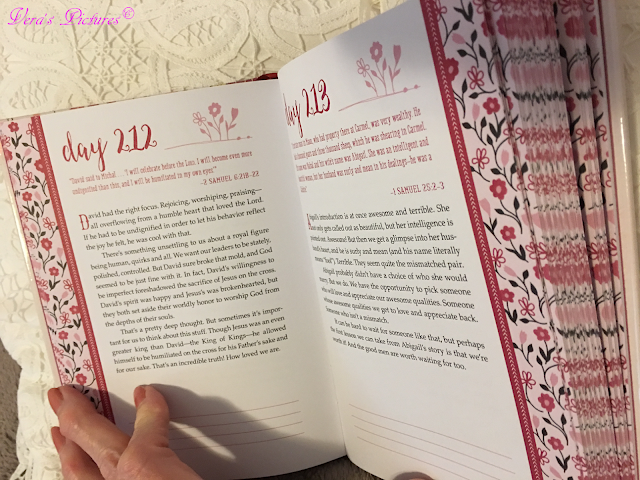 Vera's Pictures©
day 212
"David said to Michal . . . "I will celebrate before the LORD. I will become even more
undignified than this, and I will be humiliated in my own eyes!"
–2 SAMUEL 6:21B–22
David had the right focus. Rejoicing, worshiping, praising—
all overflowing from a humble heart that loved the Lord.
If he had to be undignified in order to let his behavior reflect
the joy he felt, he was cool with that.
There's something unsettling to us about a royal figure
being human, quirks and all. We want our leaders to be stately,
polished, controlled. But David sure broke that mold, and God
seemed to be just fine with it. In fact, David's willingness to
be imperfect foreshadowed the sacrifice of Jesus on the cross.
David's spirit was happy and Jesus's was brokenhearted, but
they both set aside their worldly honor to worship God from
the depths of their souls.
That's a pretty deep thought. But sometimes it's impor-
tant for us to think about this stuff. Though Jesus was an even
greater king than David—the King of Kings—he allowed
himself to be humiliated on the cross for his Father's sake and
for our sake. That's an incredible truth! How loved we are.
day 213
man in Maon, who had property there at Carmel, was very wealthy. He
thousand goats and three thousand sheep, which he was shearing in Carmel.
was Nabal and his wife's name was Abigail. She was an intelligent and
woman, but her husband was surly and mean in his dealings—he was a
–1 SAMUEL 25:2–3
Abigail's introduction is at once awesome and terrible. She
not only gets called out as beautiful, but her intelligence is
pointed out. Awesome! But then we get a glimpse into her hus-
band's heart, and he is surly and mean (and his name literally
means "fool"). Terrible. They seem quite the mismatched pair.
Abigail probably didn't have a choice of who she would
marry. But we do. We have the opportunity to pick someone
who will love and appreciate our awesome qualities. Someone
whose awesome qualities we get to love and appreciate back.
Someone who isn't a mismatch.
It can be hard to wait for someone like that, but perhaps
the first lesson we can take from Abigail's story is that we're
worth it! And the good men are worth waiting for too.